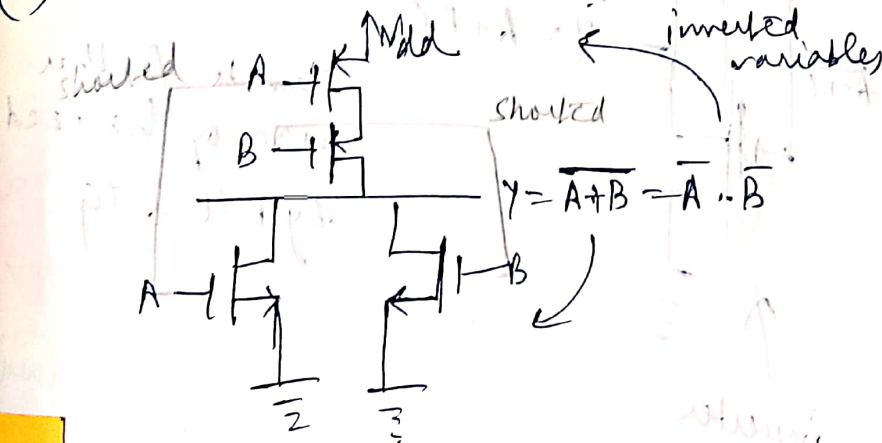 Vdd
inverted
variables
shorted
A
shorted
B
Y = \overline{A+B} = \overline{A} . \overline{B}
A
B